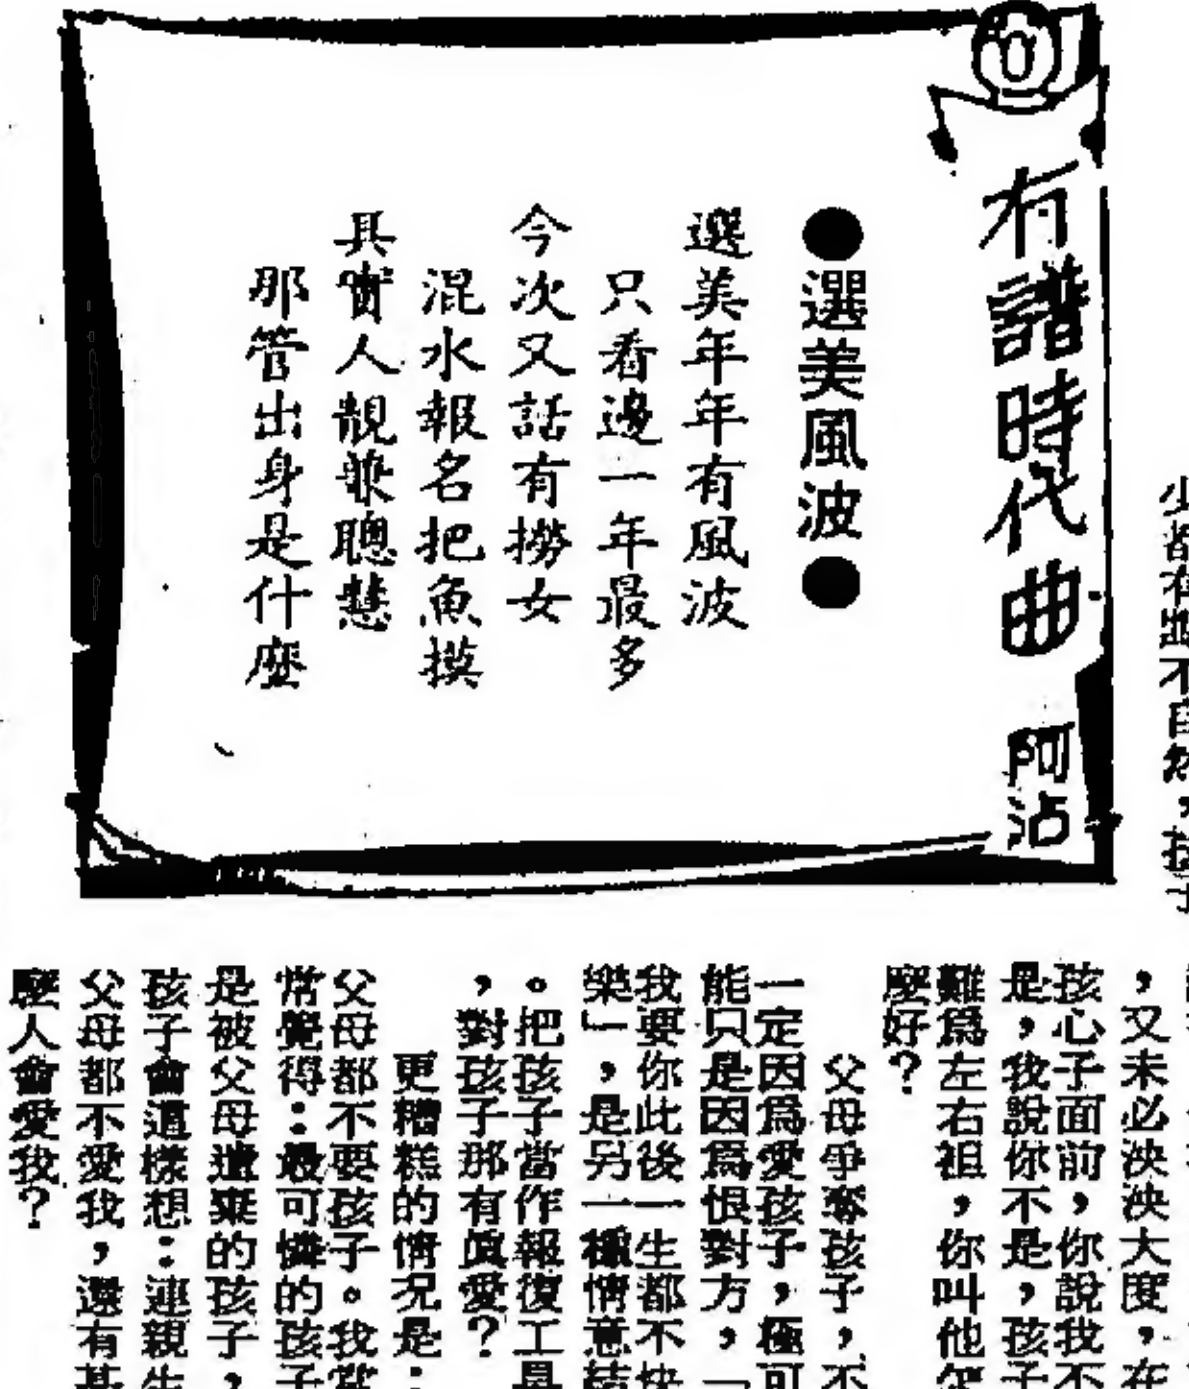 有譜時代曲 阿沾
●選美風波●
選美年年有風波
只看邊一年最多
今次又話有撈女
混水報名把魚摸
其實人靚兼聰慧
那管出身是什麼
少都有點不自然，孩子
，又未必泱泱大度，在
孩心子面前，你說我不
是，我說你不是，孩子
難爲左右祖，你叫他怎
麼好？
父母爭奪孩子，不
一定因爲愛孩子，極可
能只是因爲恨對方，「
我要你此後一生都不快
樂」，是另一種情意結
。把孩子當作報復工具
，對孩子那有眞愛？
更糟糕的情況是：
父母都不要孩子。我常
常覺得：最可憐的孩子
是被父母遺棄的孩子，
孩子會這樣想：連親生
父母都不愛我，還有甚
麼人會愛我？